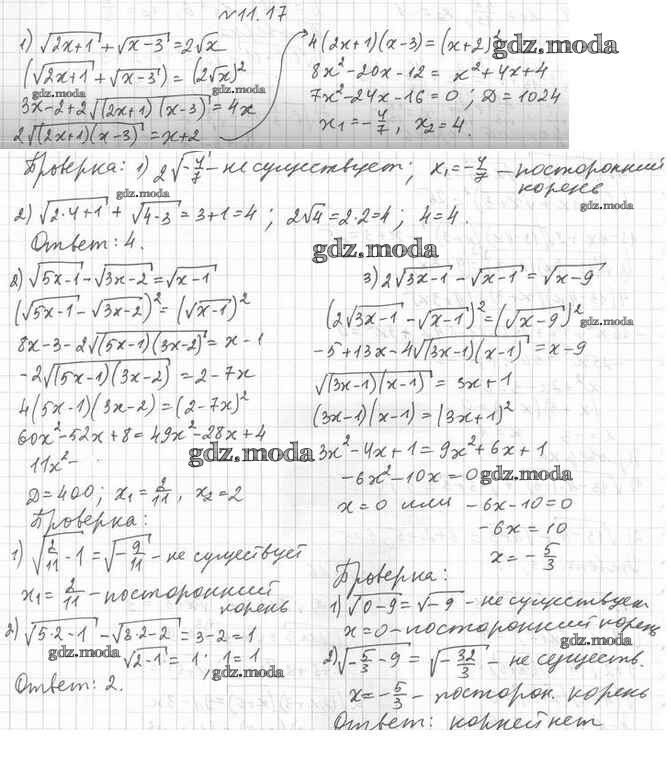 №11.17
1) √(2x+1) + √(x-3) = 2√x
(√(2x+1) + √(x-3)) = (2√x)²
3x-2+2√((2x+1)(x-3)) = 4x
2√((2x+1)(x-3)) = x+2
4(2x+1)(x-3) = (x+2)²
8x²-20x-12 = x²+4x+4
7x²-24x-16=0; D=1024
x₁=-4/7, x₂=4.
gdz.moda
gdz.moda
gdz.moda
Проверка: 1) 2√(-4/7) - не существует; x₁=-4/7 - посторонний корень
gdz.moda
gdz.moda
2) √(2·4+1) + √(4-3) = 3+1=4; 2√4=2·2=4; 4=4.
Ответ: 4.
gdz.moda
2) √(5x-1) - √(3x-2) = √(x-1)
(√(5x-1) - √(3x-2))² = (√(x-1))²
8x-3-2√((5x-1)(3x-2)) = x-1
-2√((5x-1)(3x-2)) = 2-7x
4(5x-1)(3x-2) = (2-7x)²
60x²-52x+8 = 49x²-28x+4
11x²-
D=400; x₁=2/11, x₂=2
Проверка:
1) √(2/11-1) = √(-9/11) - не существует
x₁=2/11 - посторонний корень
2) √(5·2-1) - √(3·2-2) = 3-2=1
√(2-1) = 1; 1=1
Ответ: 2.
gdz.moda
gdz.moda
gdz.moda
3) 2√(3x-1) - √(x-1) = √(x-9)
(2√(3x-1) - √(x-1))² = (√(x-9))²
gdz.moda
-5+13x-4√((3x-1)(x-1)) = x-9
√((3x-1)(x-1)) = 3x+1
(3x-1)(x-1) = (3x+1)²
3x²-4x+1 = 9x²+6x+1
-6x²-10x=0
gdz.moda
x=0 или -6x-10=0
-6x=10
x=-5/3
Проверка:
1) √(0-9) = √(-9) - не существует
x=0 - посторонний корень
2) √(-5/3-9) = √(-32/3) - не существ.
x=-5/3 - посторон. корень
Ответ: корней нет